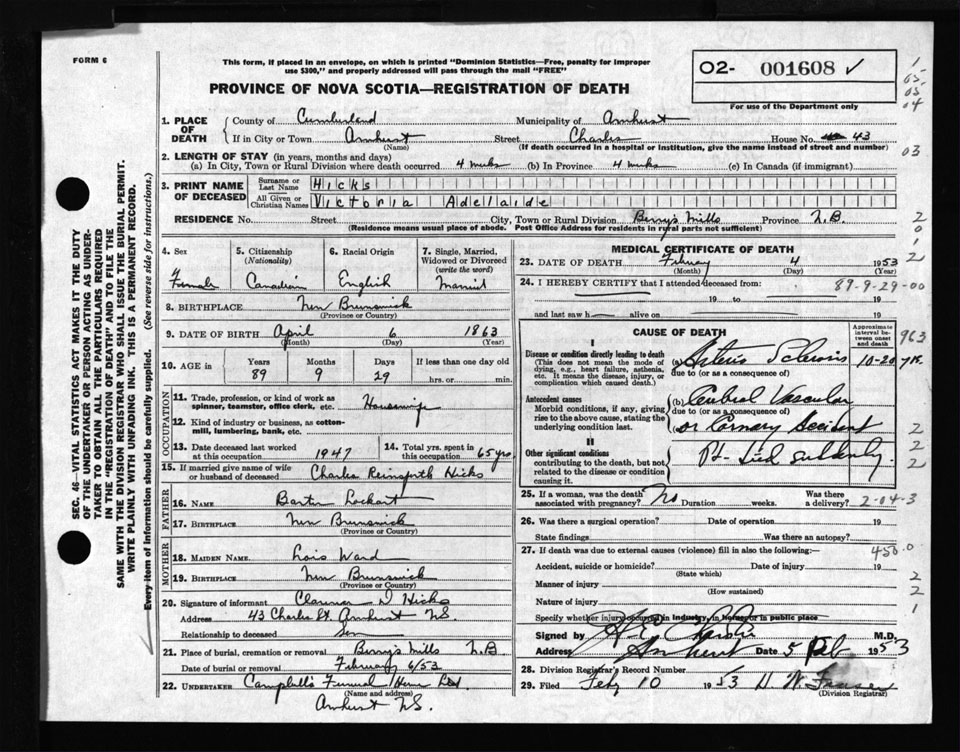 FORM 6
This form, if placed in an envelope, on which is printed "Dominion Statistics—Free, penalty for improper
use $300," and properly addressed will pass through the mail "FREE"
PROVINCE OF NOVA SCOTIA—REGISTRATION OF DEATH
O2- 001608 ✓
For use of the Department only
1
05-
03
04
03
1. PLACE OF DEATH
County of Cumberland Municipality of Amherst
If in City or Town Amherst Street Charles House No. 43
(Name) (If death occurred in a hospital or institution, give the name instead of street and number)
2. LENGTH OF STAY (in years, months and days)
(a) In City, Town or Rural Division where death occurred 4 wuks (b) In Province 4 wuks (c) In Canada (if immigrant)
3. PRINT NAME OF DECEASED
Surname or Last Name Hicks
All Given or Christian Names Victoria Adelaide
RESIDENCE No. Street City, Town or Rural Division Berry's Mills Province N.B.
(Residence means usual place of abode. Post Office Address for residents in rural parts not sufficient)
2
0
1
2
4. Sex
Female
5. Citizenship
(Nationality)
Canadian
6. Racial Origin
English
7. Single, Married, Widowed or Divorced
(write the word)
Married
8. BIRTHPLACE New Brunswick
(Province or Country)
9. DATE OF BIRTH April 6 1863
(Month) (Day) (Year)
10. AGE in
Years Months Days If less than one day old
89 9 29 hrs. or min.
OCCUPATION
11. Trade, profession or kind of work as
spinner, teamster, office clerk, etc. Housewife
12. Kind of industry or business, as cotton-
mill, lumbering, bank, etc.
13. Date deceased last worked
at this occupation 1947
14. Total yrs. spent in
this occupation 65 yrs.
15. If married give name of wife
or husband of deceased Charles Reinsforth Hicks
FATHER
16. NAME Lockart
17. BIRTHPLACE New Brunswick
(Province or Country)
MOTHER
18. MAIDEN NAME Lois Ward
19. BIRTHPLACE New Brunswick
(Province or Country)
20. Signature of informant Clarence D Hicks
Address 43 Charles St. Amherst NS.
Relationship to deceased Son
21. Place of burial, cremation or removal Berry's Mills N.B.
Date of burial or removal February 6/53
22. UNDERTAKER Campbell's Funeral Home Ltd.
(Name and address)
Amherst NS.
MEDICAL CERTIFICATE OF DEATH
23. DATE OF DEATH February 4 1953
(Month) (Day) (Year)
24. I HEREBY CERTIFY that I attended deceased from:
89-9-29-00
19 to 19
and last saw h alive on 19
CAUSE OF DEATH
Approximate interval between onset and death
963
I
Disease or condition directly leading to death
(This does not mean the mode of
dying, e.g., heart failure, asthenia,
etc. It means the disease, injury, or
complication which caused death.)
(a) 10-20 yrs.
due to (or as a consequence of)
Antecedent causes
Morbid conditions, if any, giving
rise to the above cause, stating the
underlying condition last.
(b) Cerebral Vascular
due to (or as a consequence of)
or Coronary Accident
2
II
Other significant conditions
contributing to the death, but not
related to the disease or condition
causing it.
Pt- died suddenly
2
2
25. If a woman, was the death
associated with pregnancy? No Duration weeks. Was there
a delivery? 2-04-3
26. Was there a surgical operation? Date of operation 19
State findings Was there an autopsy?
27. If death was due to external causes (violence) fill in also the following: 450.0
Accident, suicide or homicide? Date of injury 19
(State which)
Manner of injury
(How sustained)
Nature of injury
Specify whether injury occurred in industry, in home, or in public place
2
2
1
Signed by M.D.
Address Amherst Date 5 Feb 1953
28. Division Registrar's Record Number
29. Filed Feb 10 1953 H. W. Fraser
(Division Registrar)
SEC. 46—VITAL STATISTICS ACT MAKES IT THE DUTY
OF THE UNDERTAKER OR PERSON ACTING AS UNDER-
TAKER TO OBTAIN ALL THE PARTICULARS REQUIRED
IN THE "REGISTRATION OF DEATH" AND TO FILE THE
SAME WITH THE DIVISION REGISTRAR WHO SHALL ISSUE THE BURIAL PERMIT.
WRITE PLAINLY WITH UNFADING INK. THIS IS A PERMANENT RECORD.
Every item of information should be carefully supplied. (See reverse side for instructions.)